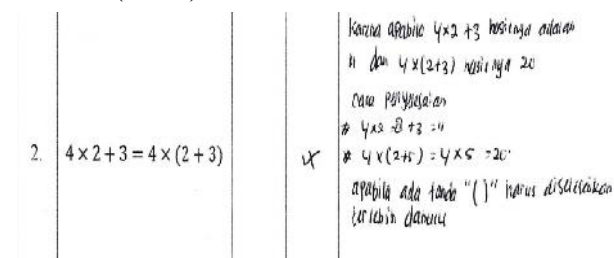 karena apabila 4x2+3 hasilnya adalah
11 dan 4x(2+3) hasilnya 20
cara penyelesaian
* 4x2 = 8 +3 = 11
2. 4 × 2 + 3 = 4 × (2 + 3) x * 4x(2+3) = 4x5 = 20
apabila ada tanda "( )" harus diselesaikan
terlebih dahulu